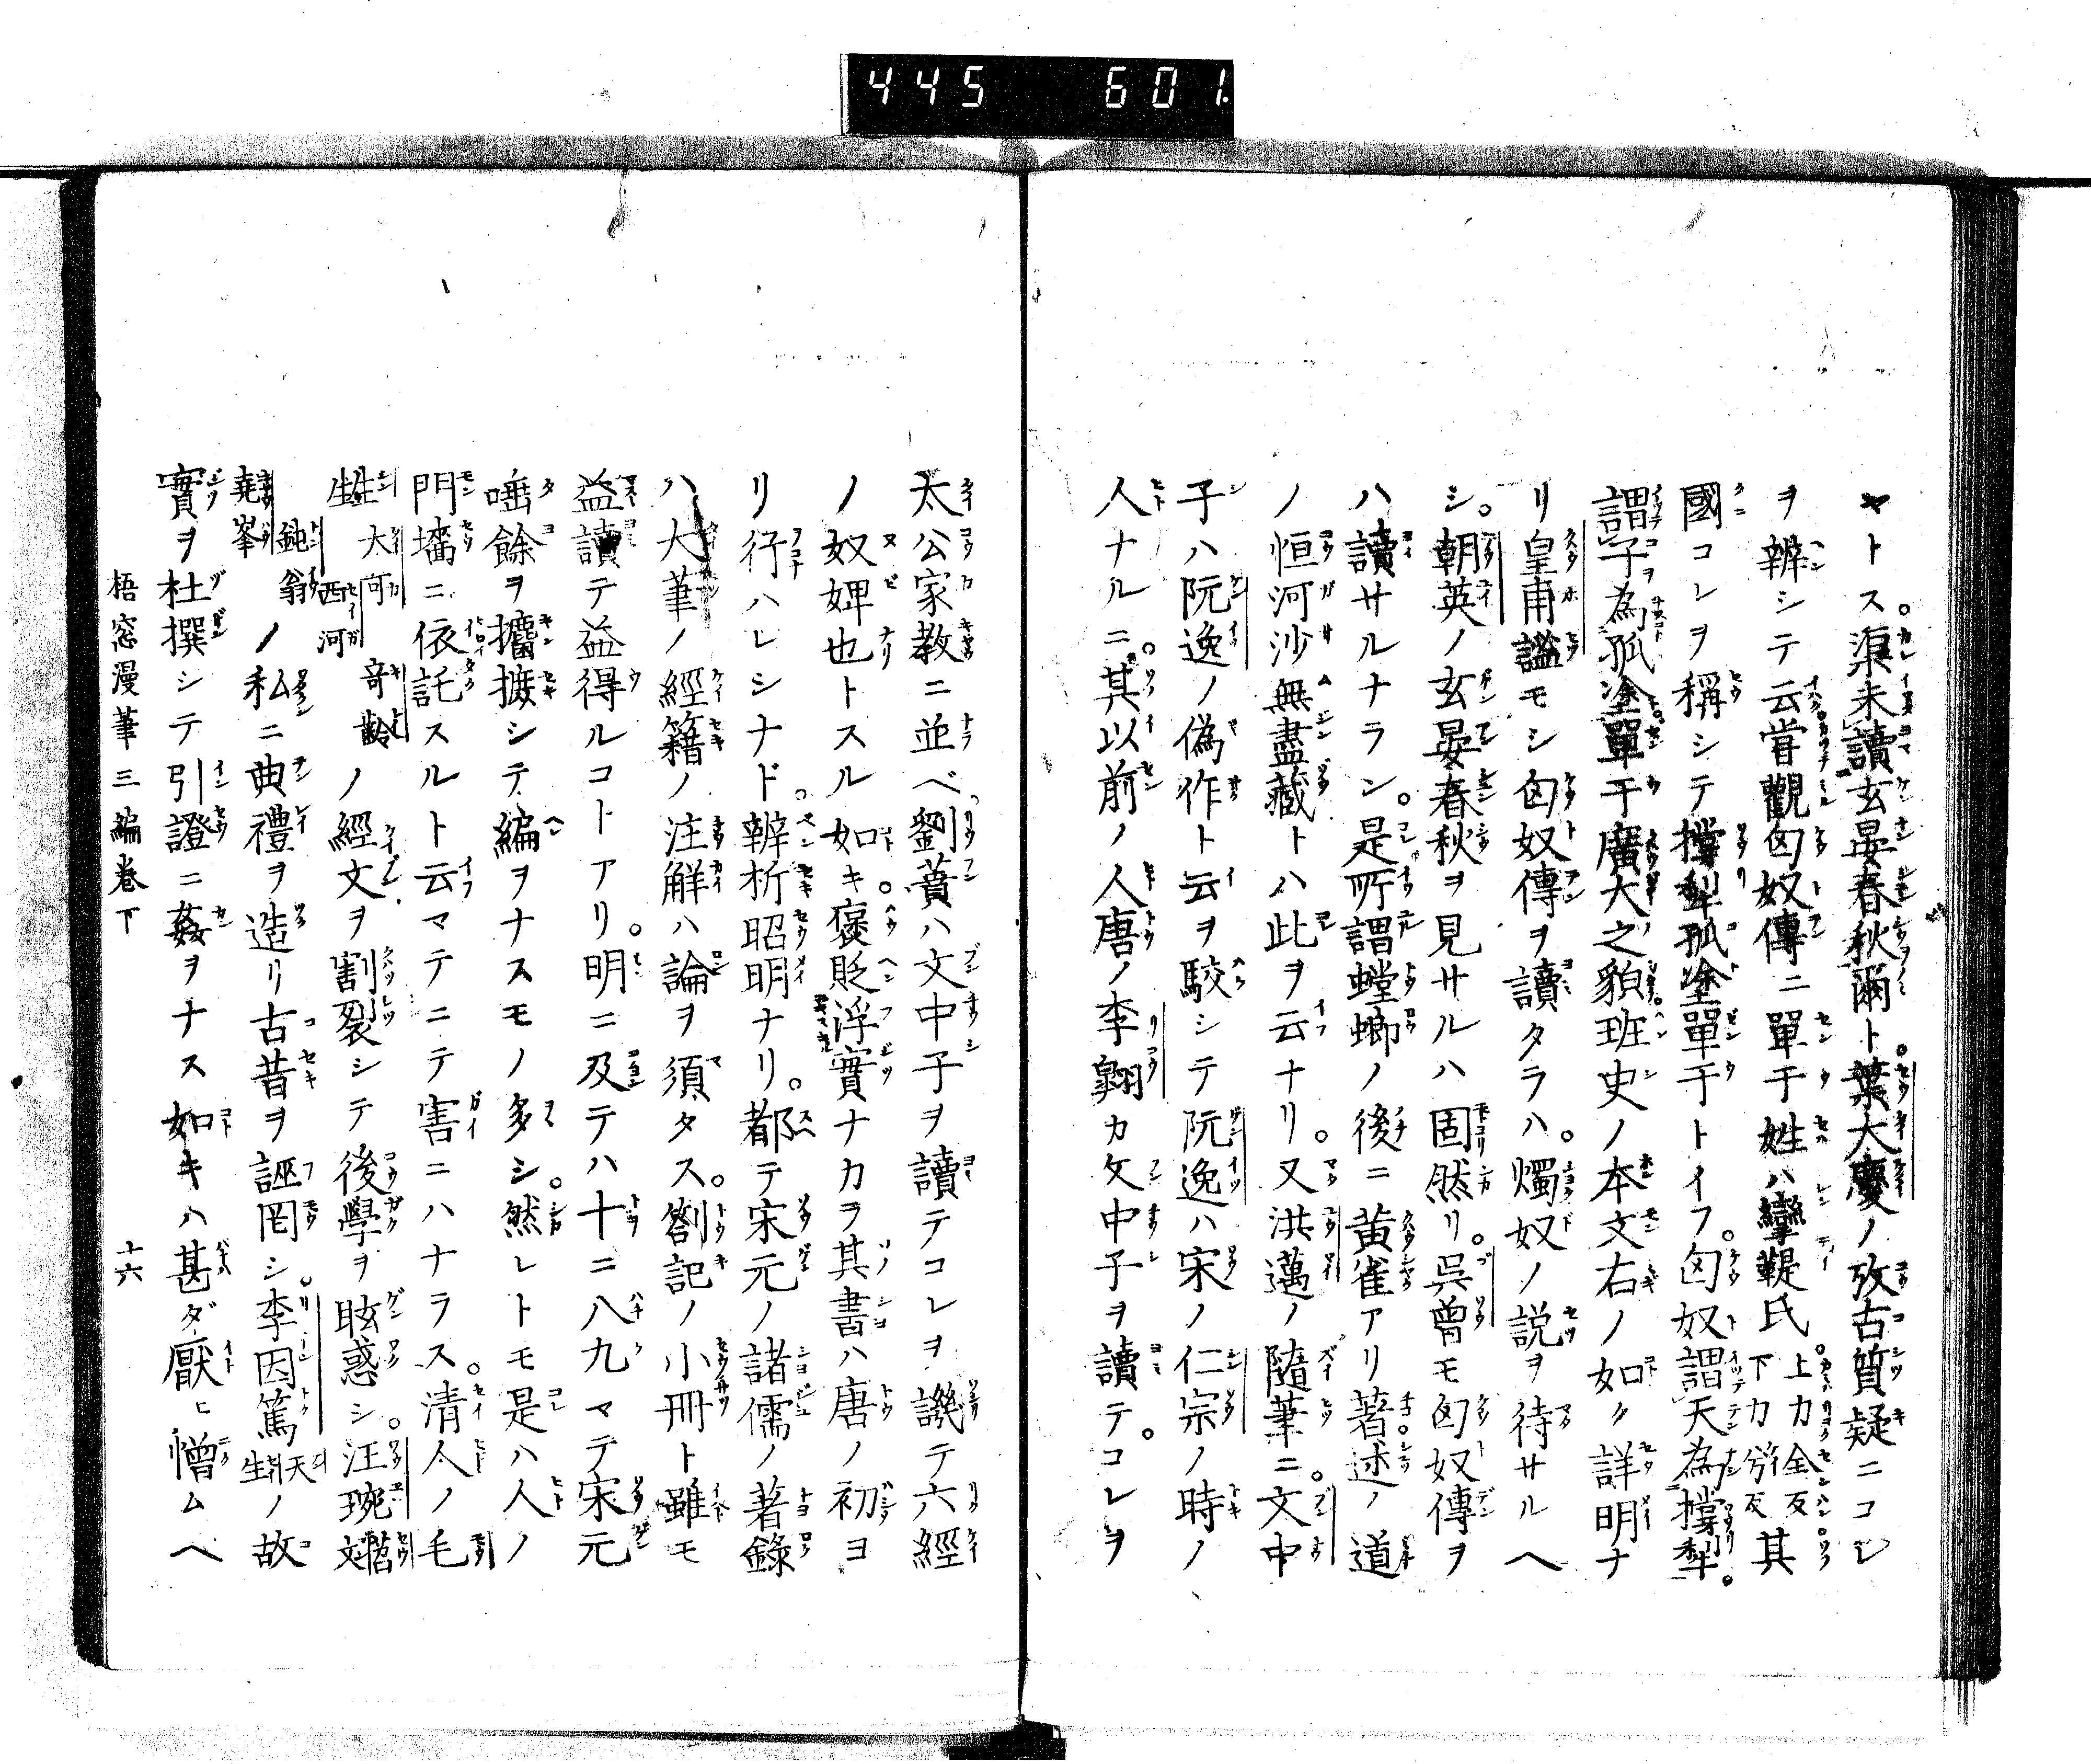 445 601.
ヤトス渠未讀玄晏春秋爾ト葉大慶ノ攷古質疑ニコレ
ヲ辨シテ云甞觀匈奴傳ニ單于姓ハ攣鞮氏上力全反下力兮反其
國コレヲ稱シテ撐犁孤塗單于トイフ。匈奴謂天為撐犁。
謂子為孤塗單于廣大之貌班史ノ本文右ノ如ク詳明ナ
リ皇甫謐モシ匈奴傳ヲ讀タラハ。燭奴ノ説ヲ待サルヘ
シ。朝英ノ玄晏春秋ヲ見サルハ固然リ。吳曾モ匈奴傳ヲ
ハ讀サルナラン。是所謂螳螂ノ後ニ黄雀アリ著述ノ道
ノ恒河沙無盡藏トハ此ヲ云ナリ。又洪邁ノ隨筆ニ。文中
子ハ阮逸ノ偽作ト云ヲ駮シテ阮逸ハ宋ノ仁宗ノ時ノ
人ナルニ。其以前ノ人唐ノ李翺カ文中子ヲ讀テ。コレヲ
太公家教ニ並ベ。劉蕡ハ文中子ヲ讀テコレヲ譏テ六經
ノ奴婢也トスル如キ。褒貶浮實ナカヲ其書ハ唐ノ初ヨ
リ行ハレシナド。辨析昭明ナリ。都テ宋元ノ諸儒ノ著錄
ハ大筆ノ經籍ノ注解ハ論ヲ須タス。劄記ノ小冊ト雖モ
益讀テ益得ルコトアリ。明ニ及テハ十ニ八九マテ宋元
唾餘ヲ攟摭シテ編ヲナスモノ多シ。然レトモ是ハ人ノ
門墻ニ依託スルト云マテニテ害ニハナラス。清人ノ毛
甡大可西河竒齡ノ經文ヲ割裂シテ後學ヲ眩惑シ。汪琬苕文
鈍翁堯峯ノ私ニ典禮ヲ造リ古昔ヲ誣罔シ。李因篤天生ノ故
實ヲ杜撰シテ引證ニ姦ヲナス如キハ甚ダ厭ヒ憎ムヘ
梧窓漫筆三編卷下 十六